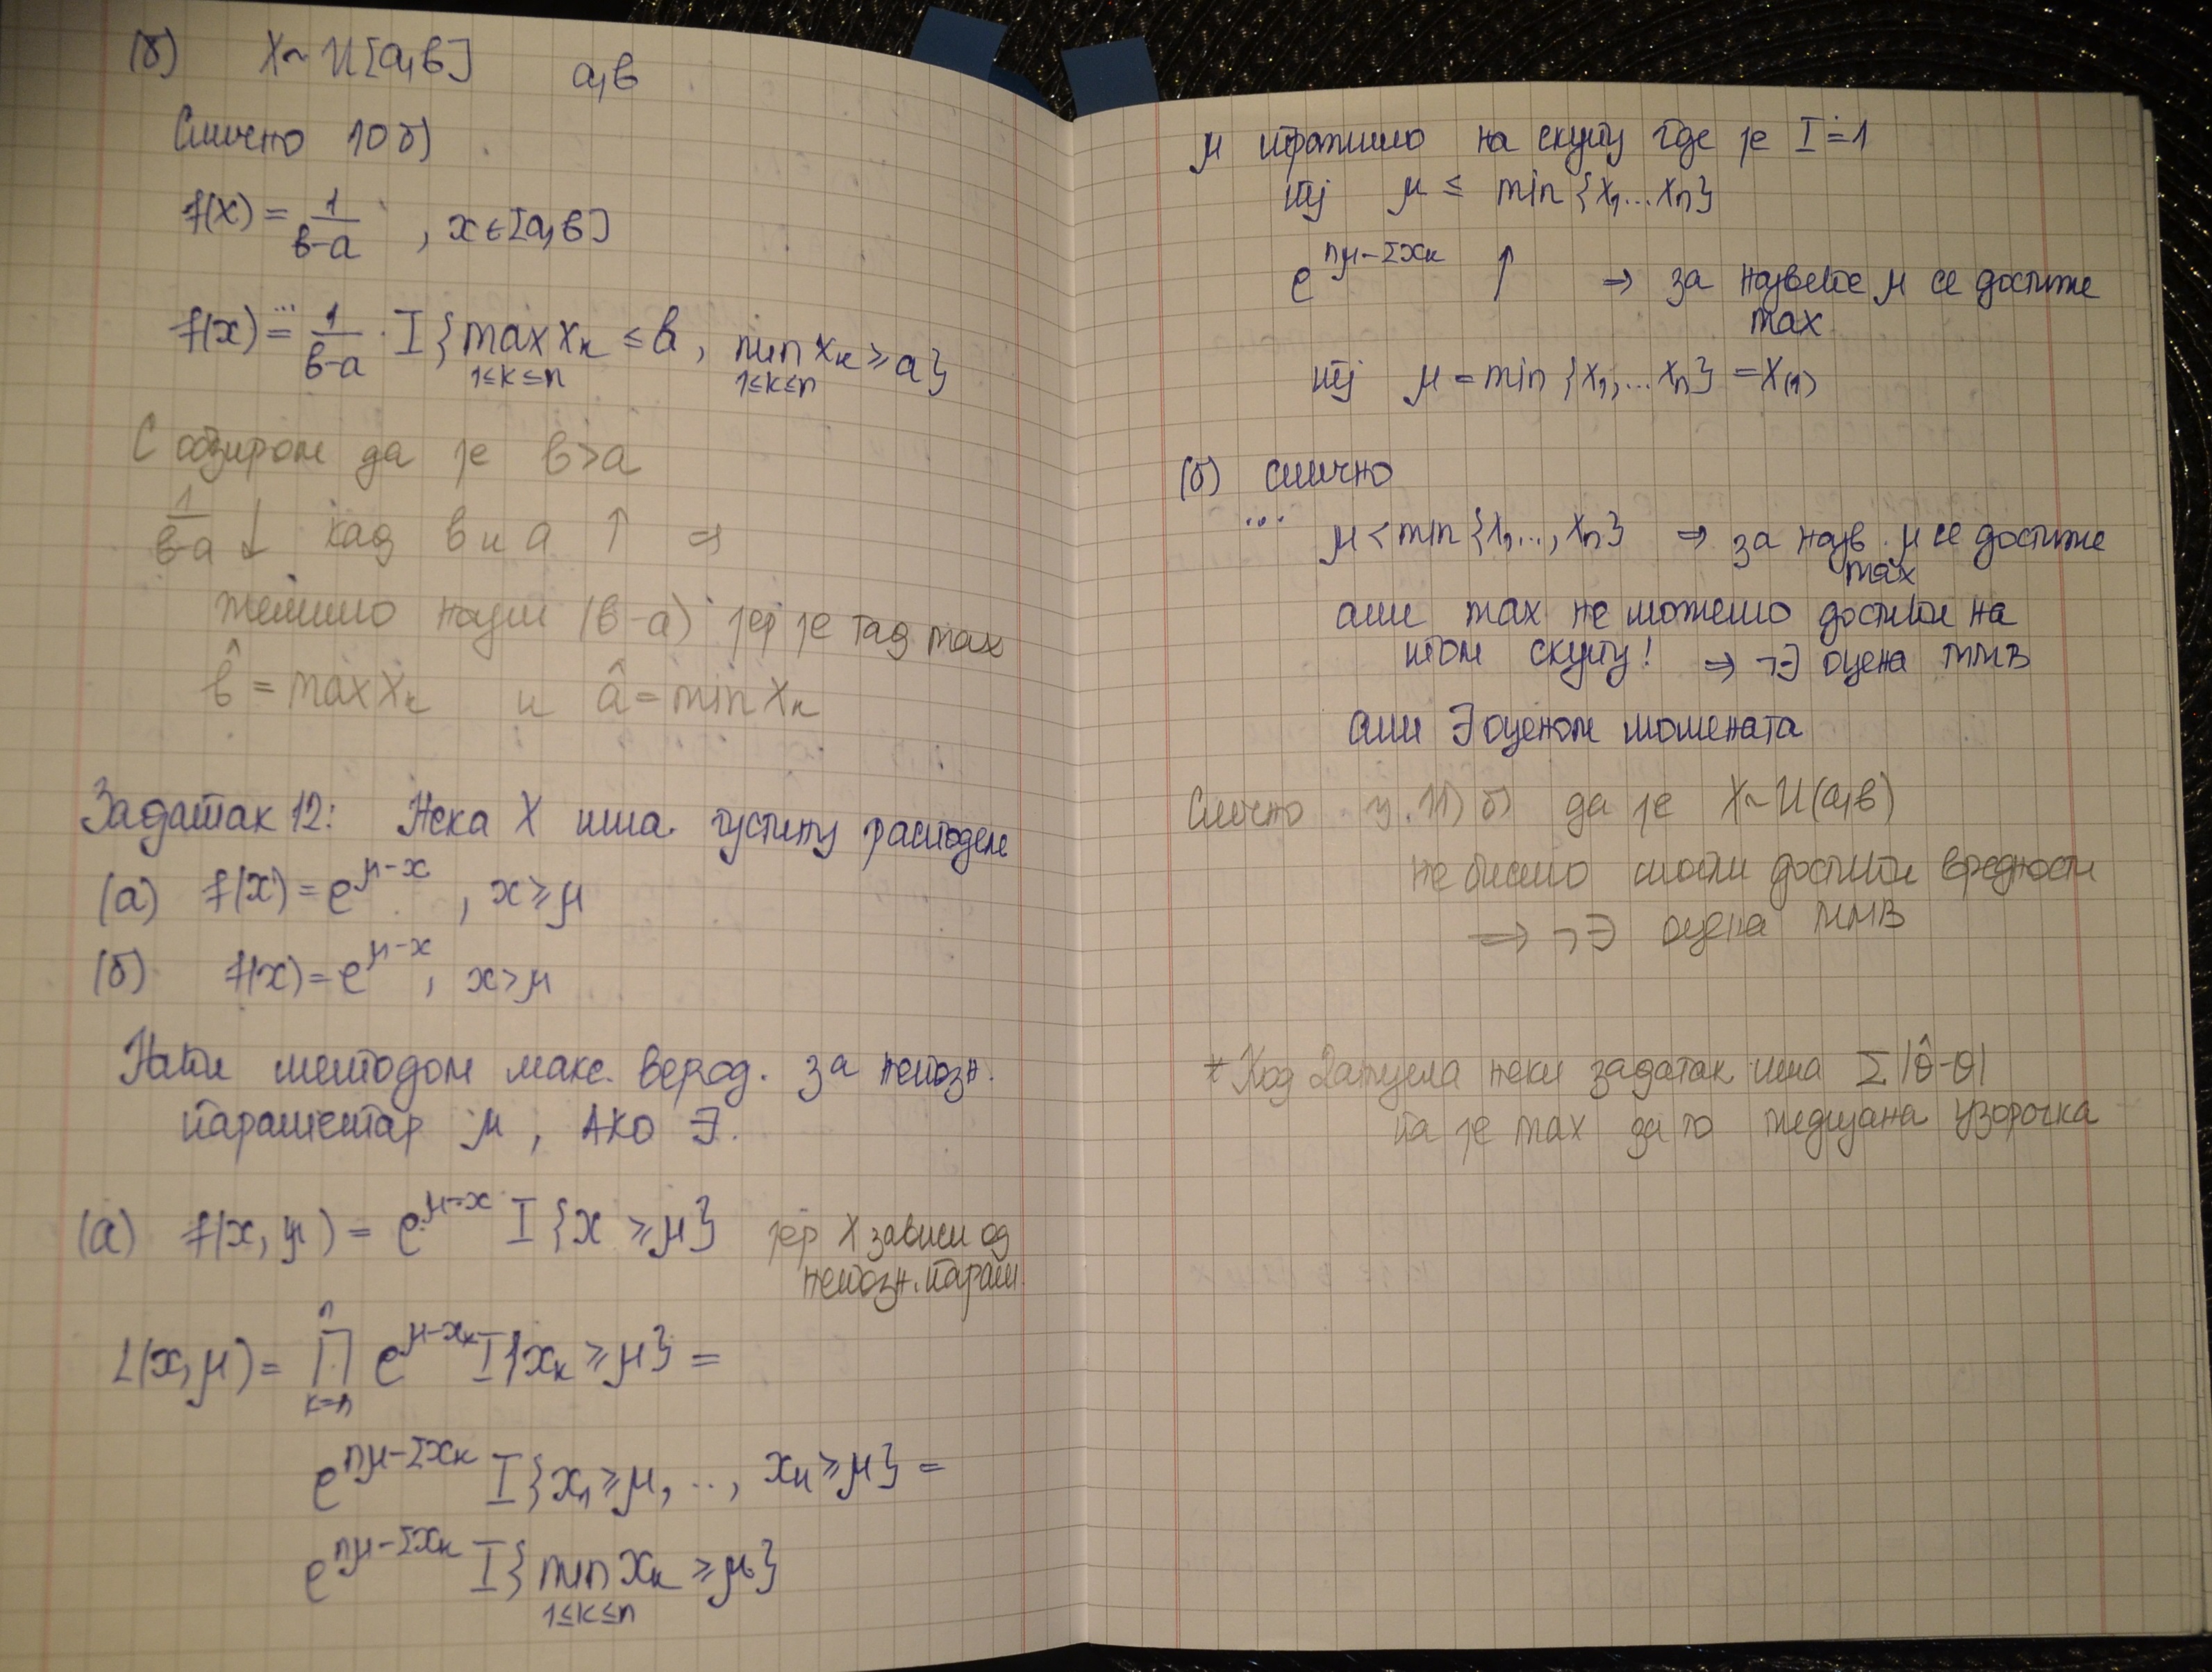 (б) X~U[a,b] a,b
Слично 10 б)
f(x) = 1/(b-a) , x∈[a,b]
f(x) =... 1/(b-a) · I{max xₖ ≤ b, min xₖ ≥ a}
1≤k≤n 1≤k≤n
С обзиром да је b>a
1/(b-a) ↓ кад b и a ↑ ⇒
желимо најм (b-a) јер је тад max
b̂ = max Xₖ и â = min Xₖ
Задатак 12: Нека X има густину расподеле
(а) f(x) = e^(μ-x) , x ≥ μ
(б) f(x) = e^(μ-x) , x > μ
Наћи методом макс. верод. за непозн.
параметар μ , АКО ∃.
(а) f(x,μ) = e^(μ-x) I{x ≥ μ} јер X зависи од
непозн. парам.
L(x,μ) = ∏ⁿₖ₌₁ e^(μ-xₖ) I{xₖ ≥ μ} =
e^(nμ-Σxₖ) I{x₁ ≥ μ, ..., xₙ ≥ μ} =
e^(nμ-Σxₖ) I{min xₖ ≥ μ}
1≤k≤n
μ тражимо на скупу где је I=1
тј μ ≤ min{x₁,...xₙ}
e^(nμ-Σxₖ) ↑ ⇒ за највеће μ се достиже
max
тј μ = min{x₁,...xₙ} = X₍₁₎
(б) слично
... μ < min{x₁,...,xₙ} ⇒ за најв. μ се достиже
max
али max не можемо достићи на
том скупу! ⇒ ¬∃ оцена ММВ
али ∃ оценом момената
Слично у 11) б) да је X~U(a,b)
не бисмо могли достићи вредности
⇒ ¬∃ оцена ММВ
* Код Данијела неки задатак има Σ|θ̂-θ|
па је max за то медијана узорачка